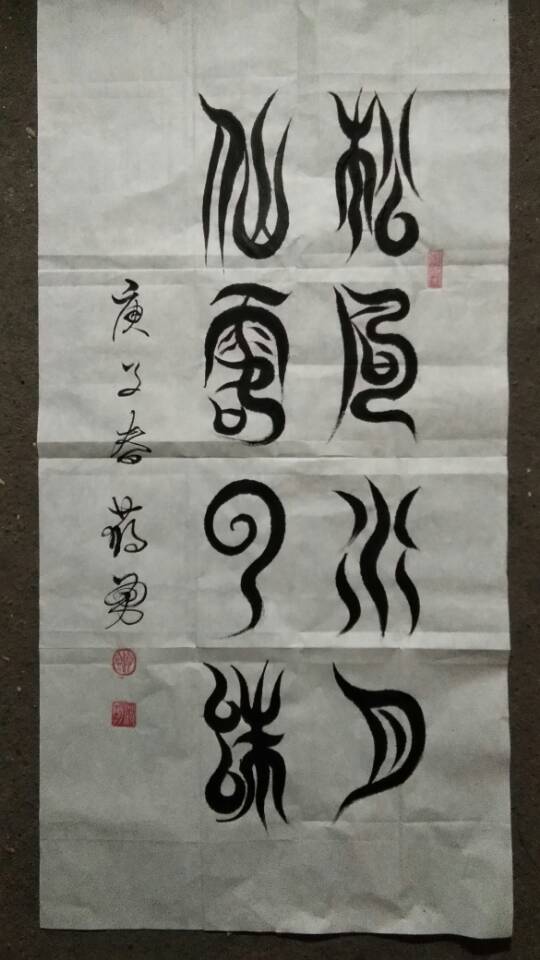 松風水月
仙露明珠
庚子春蒋勇